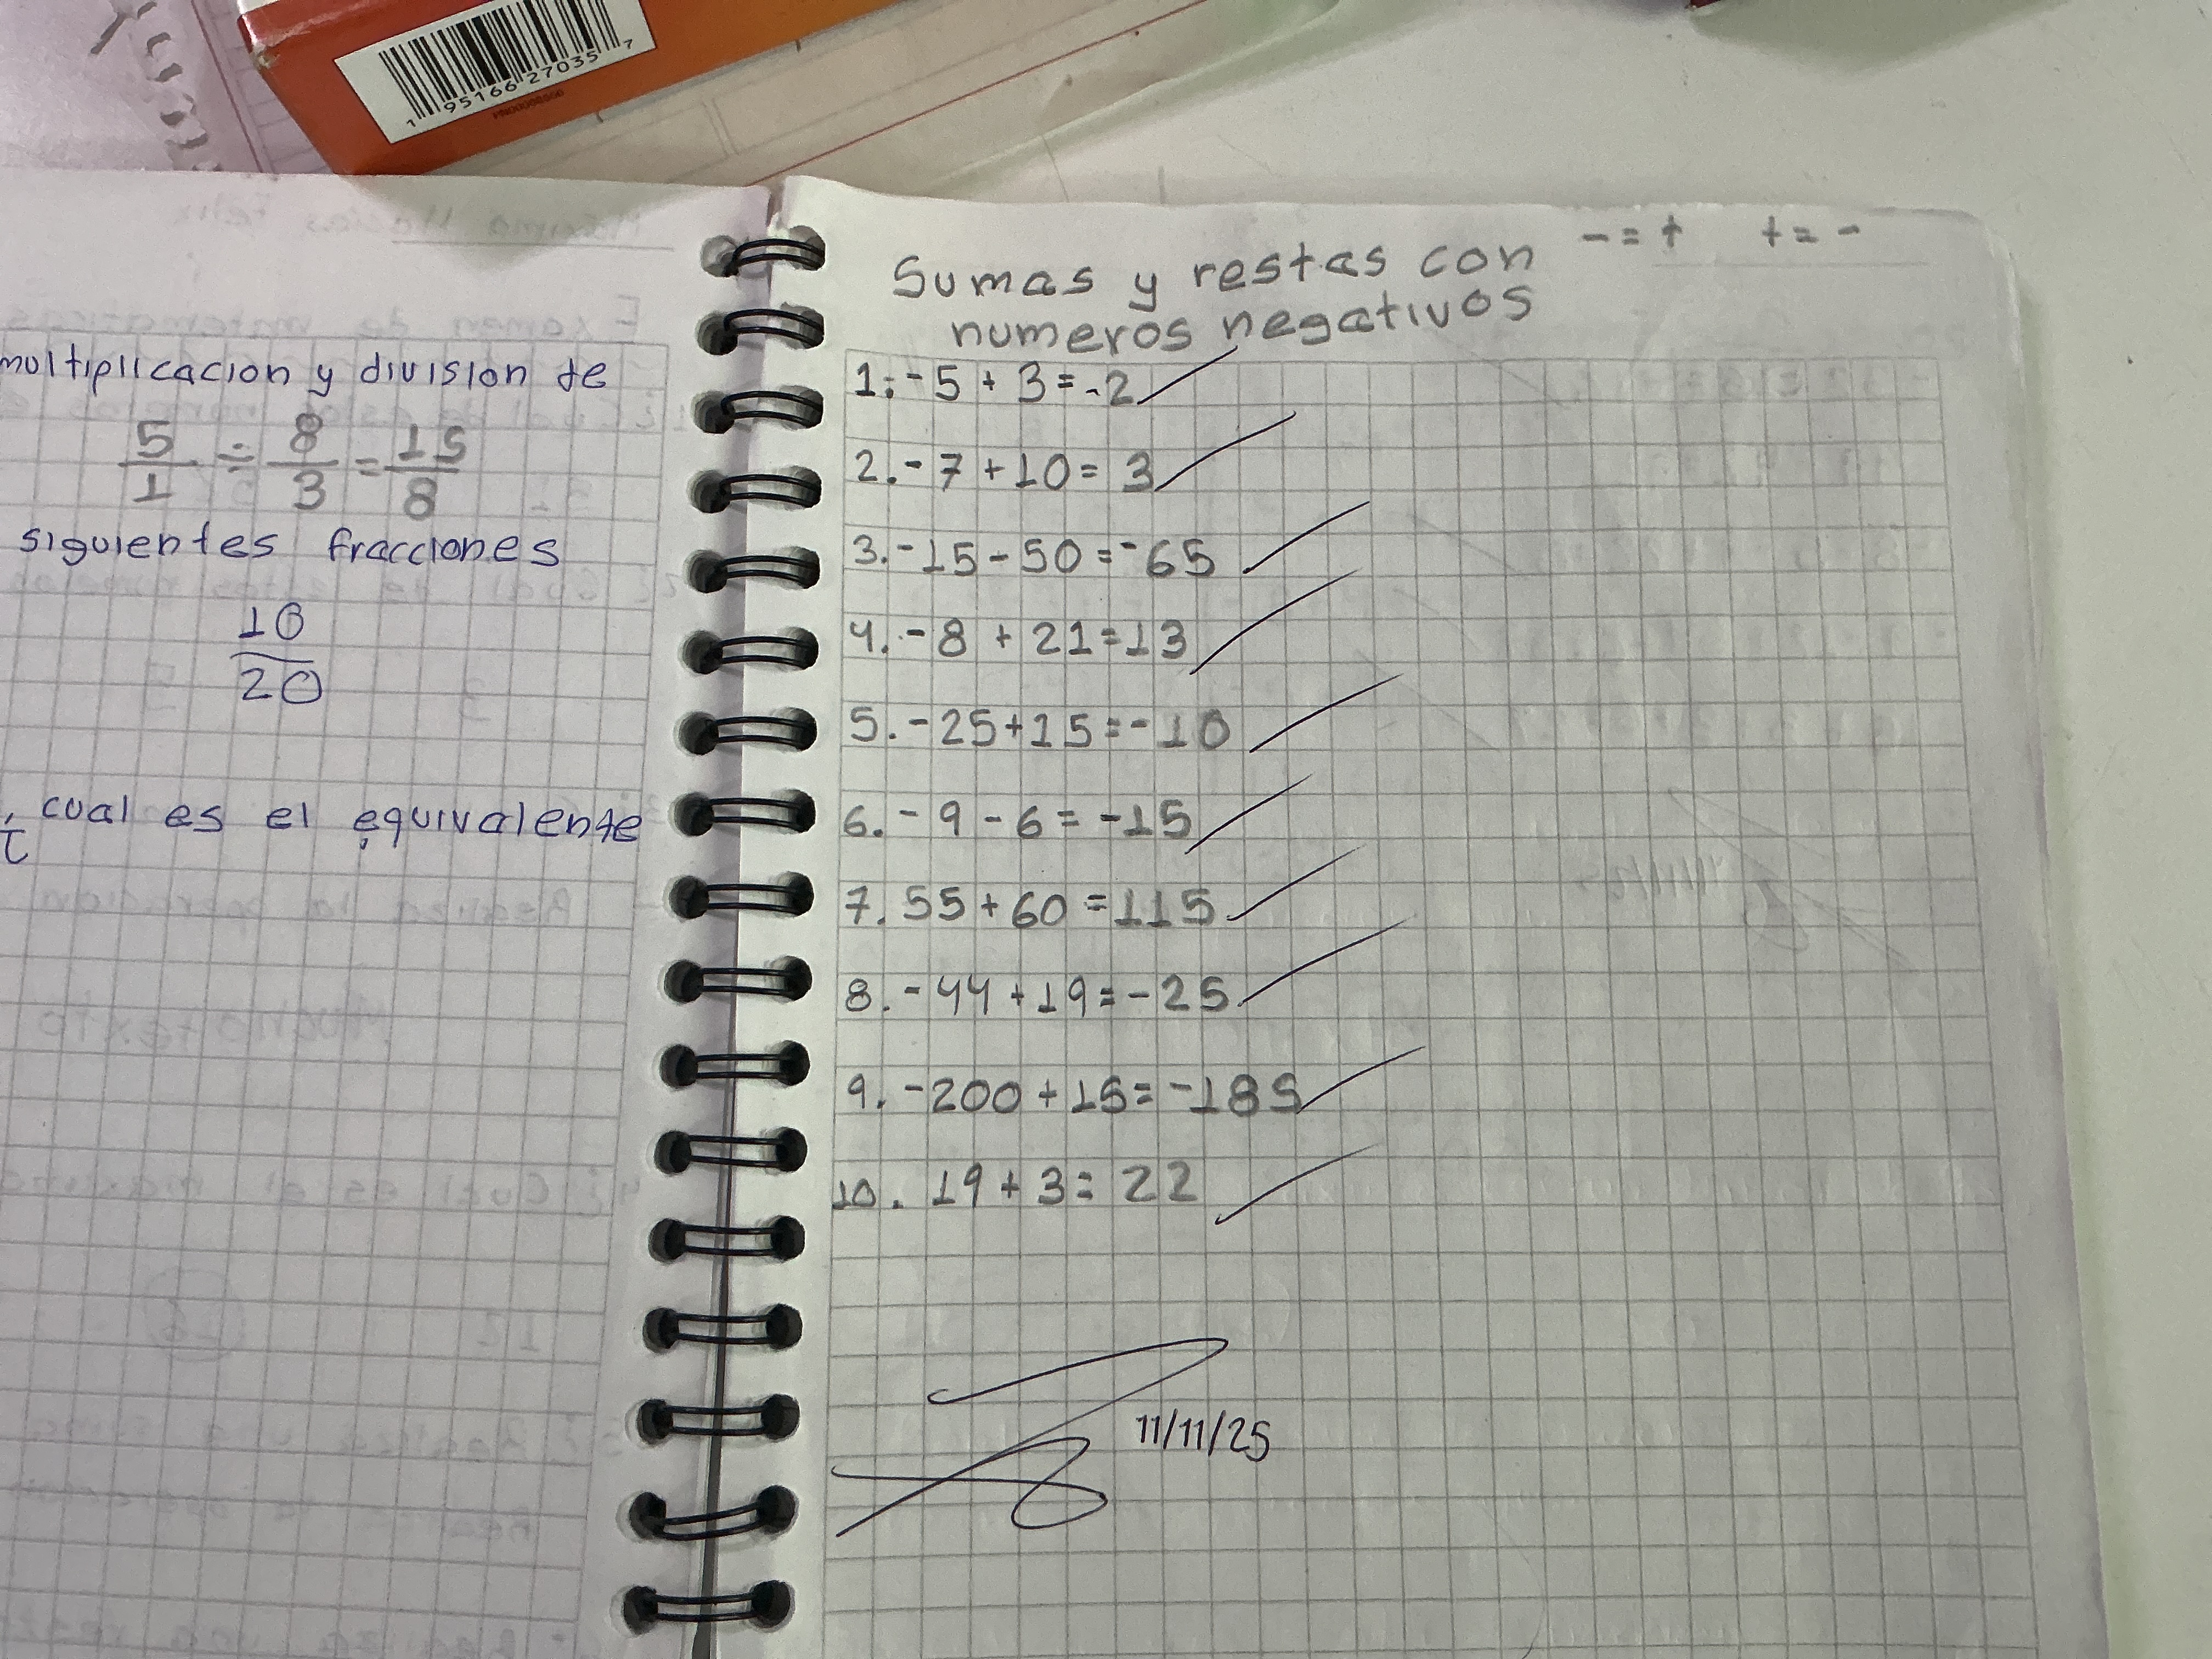 1 95166 27035 7
multiplicacion y division de
5/1 ÷ 8/3 = 15/8
siguientes fracciones
10/20
¿ cual es el equivalente
- = + + = -
Sumas y restas con
numeros negativos
1. -5 + 3 = -2
2. -7 + 10 = 3
3. -15 - 50 = -65
4. -8 + 21 = 13
5. -25 + 15 = -10
6. -9 - 6 = -15
7. 55 + 60 = 115
8. -44 + 19 = -25
9. -200 + 15 = -185
10. 19 + 3 = 22
11/11/25